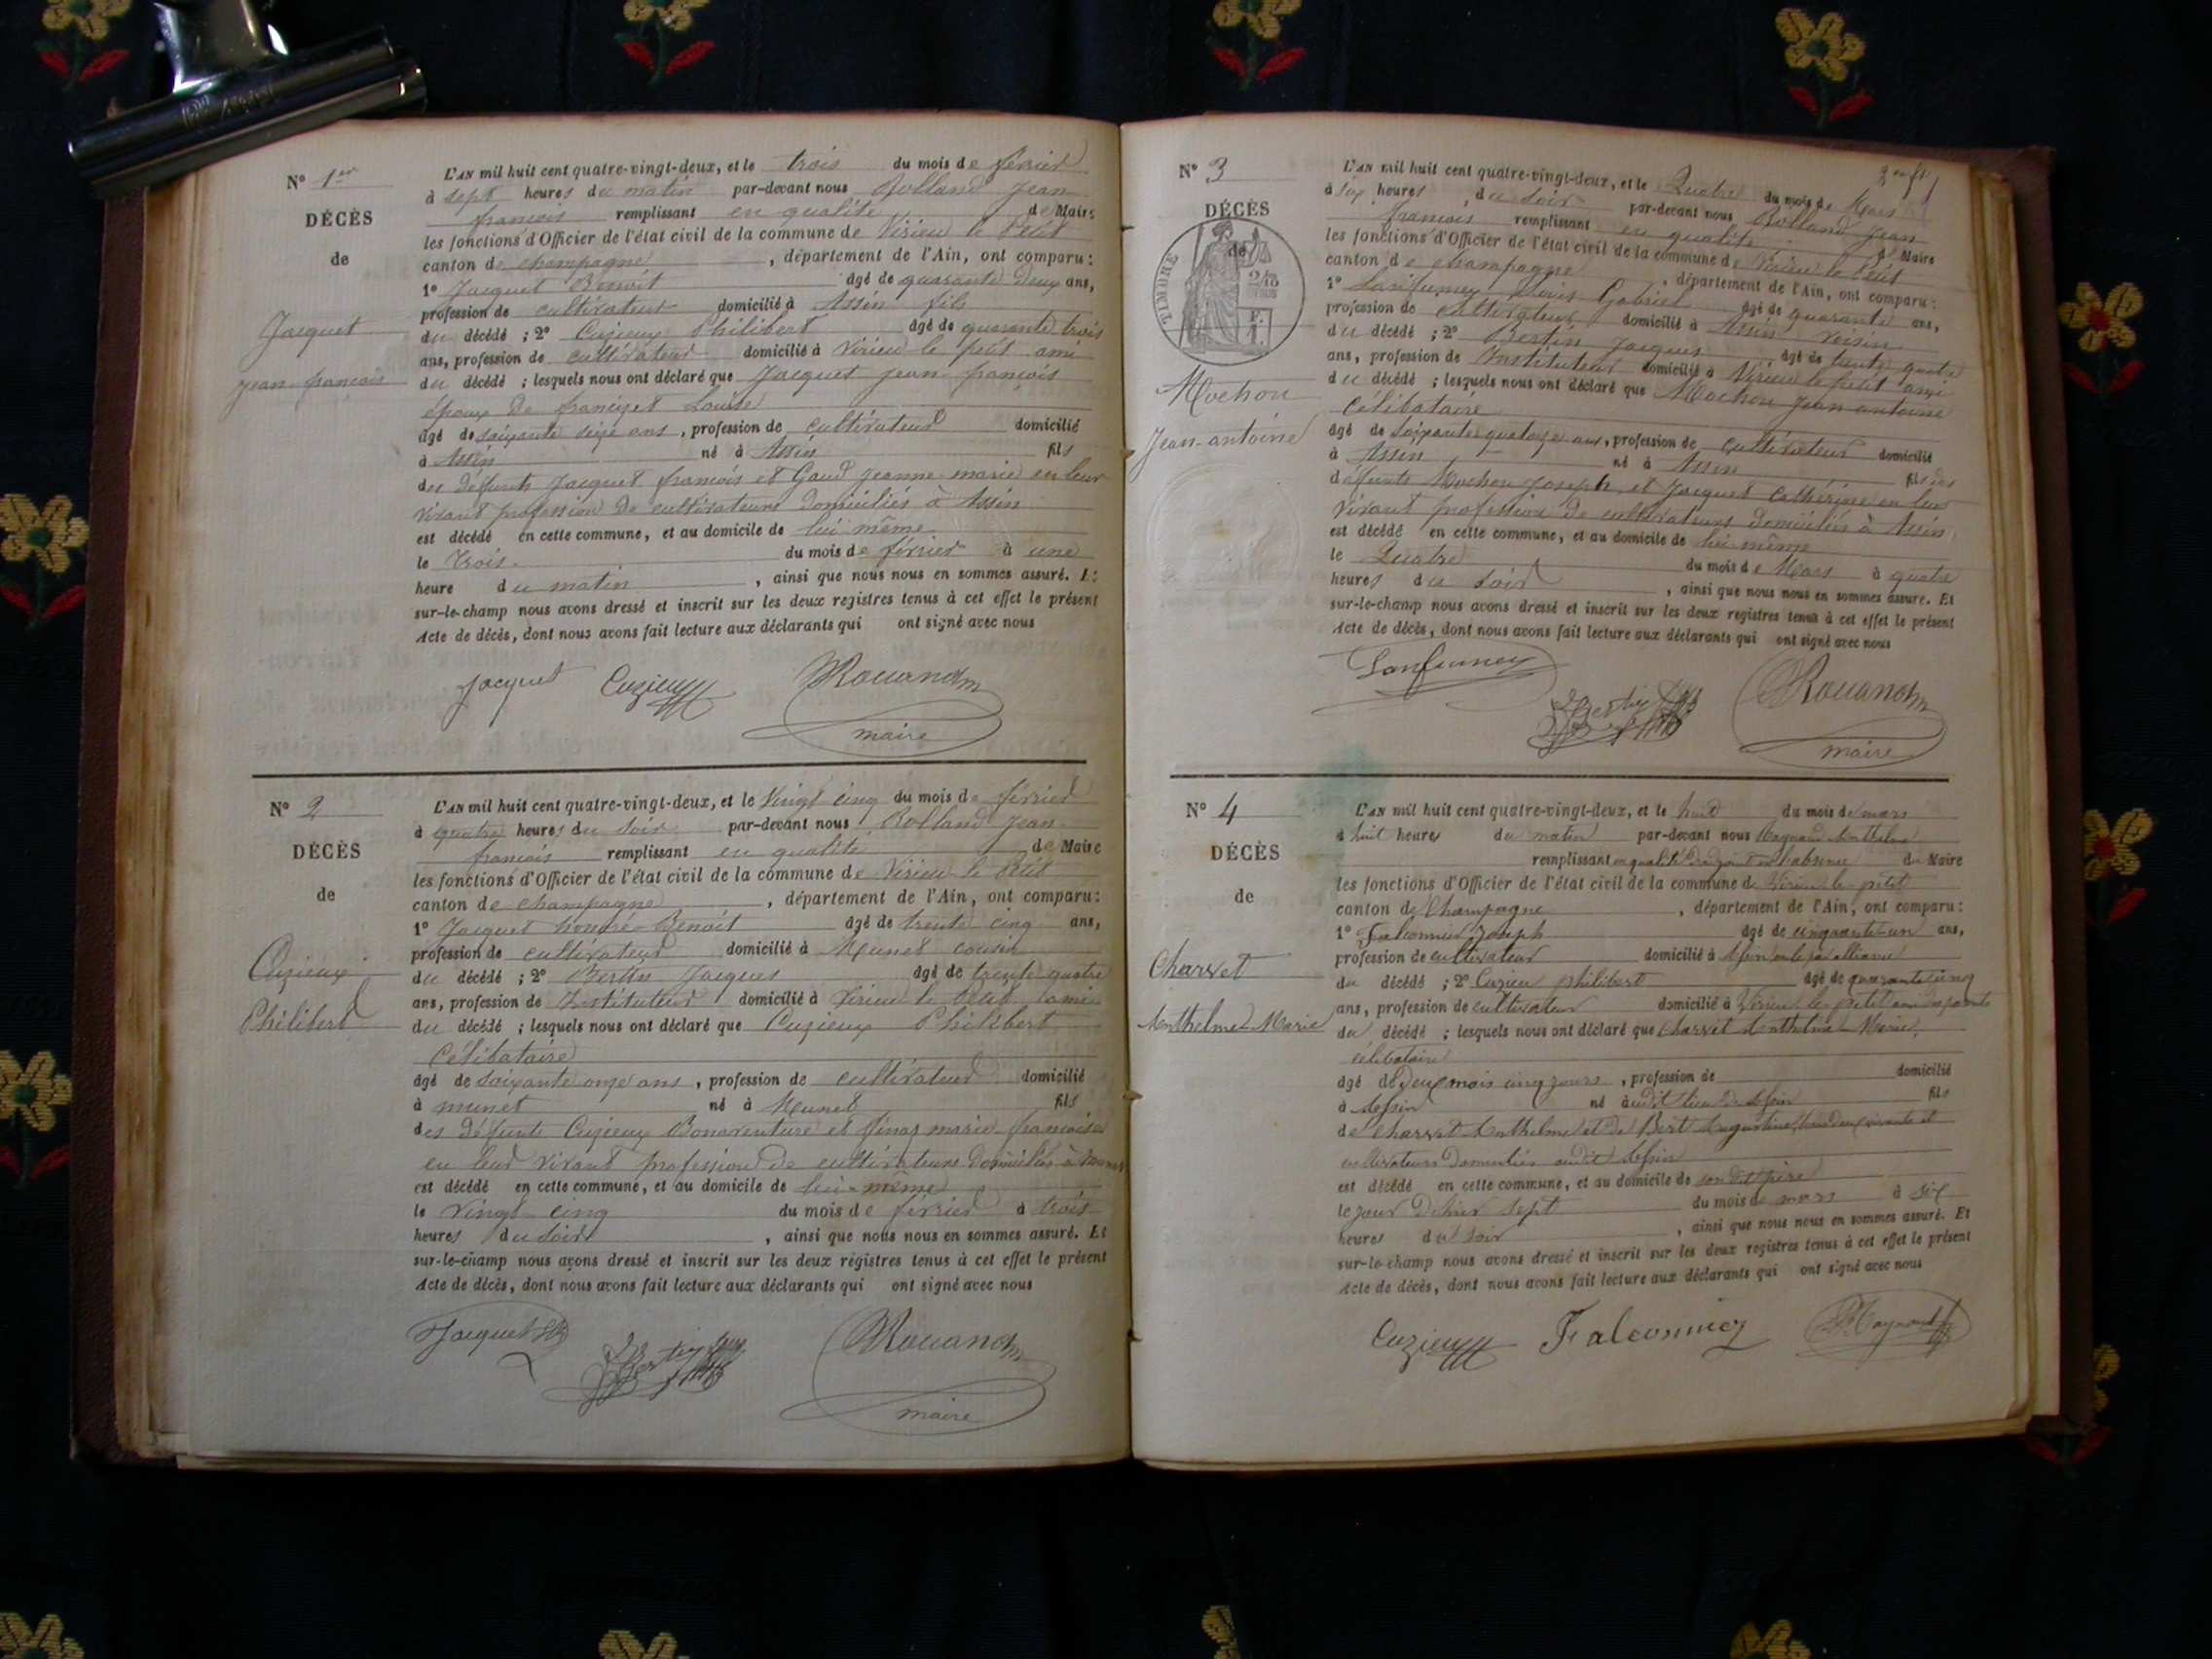 N° 1er
DÉCÈS
de
Jacquet
jean françois
L'AN mil huit cent quatre-vingt-deux, et le trois du mois de février
à sept heures du matin par-devant nous Rolland Jean
françois remplissant en qualité de Maire
les fonctions d'Officier de l'état civil de la commune de Virieu le Petit
canton de champagne, département de l'Ain, ont comparu:
1° Jacquet Benoit âgé de quarante deux ans,
profession de cultivateur domicilié à Assin fils
du décédé ; 2° Cuzieux Philibert âgé de quarante trois
ans, profession de cultivateur domicilié à Virieu le petit ami
du décédé ; lesquels nous ont déclaré que Jacquet jean françois
époux de françizet Louise
âgé de soixante seize ans, profession de cultivateur domicilié
à Assin né à Assin fils
des défunts Jacquet françois et Gaud jeanne marie en leur
vivant profession de cultivateurs domiciliés à Assin
est décédé en cette commune, et au domicile de lui même
le trois du mois de février à une
heure du matin, ainsi que nous nous en sommes assuré. Et
sur-le-champ nous avons dressé et inscrit sur les deux registres tenus à cet effet le présent
Acte de décès, dont nous avons fait lecture aux déclarants qui ont signé avec nous
Jacquet Cuzieux
maire
N° 2
DÉCÈS
de
Cuzieux
Philibert
L'AN mil huit cent quatre-vingt-deux, et le Vingt cinq du mois de février
à quatre heures du soir par-devant nous Rolland Jean
françois remplissant en qualité de Maire
les fonctions d'Officier de l'état civil de la commune de Virieu le Petit
canton de champagne, département de l'Ain, ont comparu:
1° Jacquet honoré Benoit âgé de trente cinq ans,
profession de cultivateur domicilié à Munet cousin
du décédé ; 2° Bertin Jacques âgé de trente quatre
ans, profession de Instituteur domicilié à Virieu le petit ami
du décédé ; lesquels nous ont déclaré que Cuzieux Philibert
Célibataire
âgé de soixante onze ans, profession de cultivateur domicilié
à munet né à Munet fils
des défunts Cuzieux Bonaventure et finaz marie françoise
en leur vivant profession de cultivateurs domiciliés à Munet
est décédé en cette commune, et au domicile de lui-même
le Vingt cinq du mois de février à trois
heures du soir, ainsi que nous nous en sommes assuré. Et
sur-le-champ nous avons dressé et inscrit sur les deux régistres tenus à cet effet le présent
Acte de décès, dont nous avons fait lecture aux déclarants qui ont signé avec nous
Jacquet Bertin
maire
N° 3
DÉCÈS
de
TIMBRE
Mochon
Jean-antoine
L'AN mil huit cent quatre-vingt-deux, et le Quatre du mois de Mars
à six heures du soir par-devant nous Rolland Jean
françois remplissant en qualité de Maire
les fonctions d'Officier de l'état civil de la commune de Virieu le Petit
canton de champagne, département de l'Ain, ont comparu:
1° Lanfumey Louis Gabriel âgé de quarante ans,
profession de cultivateur domicilié à Assin voisin
du décédé ; 2° Bertin Jacques âgé de trente quatre
ans, profession de Instituteur domicilié à Virieu le petit ami
du décédé ; lesquels nous ont déclaré que Mochon Jean antoine
Célibataire
âgé de soixante quatorze ans, profession de cultivateur domicilié
à Assin né à Assin fils des
défunts Mochon Joseph et Jacquet Cathérine en leur
vivant profession de cultivateurs domiciliés à Assin
est décédé en cette commune, et au domicile de lui-même
le Quatre du mois de Mars à quatre
heures du soir, ainsi que nous nous en sommes assuré. Et
sur-le-champ nous avons dressé et inscrit sur les deux registres tenus à cet effet le présent
Acte de décès, dont nous avons fait lecture aux déclarants qui ont signé avec nous
Lanfumey Bertin
maire
N° 4
DÉCÈS
de
Charvet
Anthelme-Marie
L'AN mil huit cent quatre-vingt-deux, et le huit du mois de mars
à huit heures du matin par-devant nous Anthelme
remplissant en qualité d'adjoint en l'absence du Maire
les fonctions d'Officier de l'état civil de la commune de Virieu-le-petit
canton de Champagne, département de l'Ain, ont comparu:
1° Falconnier Joseph âgé de cinquante-un ans,
profession de cultivateur domicilié à Assin oncle par alliance
du décédé ; 2° Cuzieu philibert âgé de quarante cinq
ans, profession de cultivateur domicilié à Virieu-le-petit ami
du décédé ; lesquels nous ont déclaré que Charvet Anthelme-Marie,
célibataire
âgé de deux mois cinq jours, profession de domicilié
à Assin né audit lieu de Assin fils
de Charvet Anthelme et de Bert Augustine, tous deux vivants et
cultivateurs domiciliés audit Assin
est décédé en cette commune, et au domicile de son dit père
le jour d'hier sept du mois de mars à six
heures du soir, ainsi que nous nous en sommes assuré. Et
sur-le-champ nous avons dressé et inscrit sur les deux registres tenus à cet effet le présent
Acte de décès, dont nous avons fait lecture aux déclarants qui ont signé avec nous
Cuzieux Falconnier